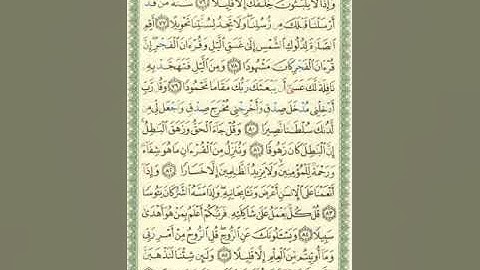 وَإِذًا لَّا يَلْبَثُونَ خِلَٰفَكَ إِلَّا قَلِيلًا ﴿٧٦﴾ سُنَّةَ مَن قَدْ
أَرْسَلْنَا قَبْلَكَ مِن رُّسُلِنَا وَلَا تَجِدُ لِسُنَّتِنَا تَحْوِيلًا ﴿٧٧﴾ أَقِمِ
ٱلصَّلَوٰةَ لِدُلُوكِ ٱلشَّمْسِ إِلَىٰ غَسَقِ ٱلَّيْلِ وَقُرْءَانَ ٱلْفَجْرِ إِنَّ
قُرْءَانَ ٱلْفَجْرِ كَانَ مَشْهُودًا ﴿٧٨﴾ وَمِنَ ٱلَّيْلِ فَتَهَجَّدْ بِهِۦ
نَافِلَةً لَّكَ عَسَىٰٓ أَن يَبْعَثَكَ رَبُّكَ مَقَامًا مَّحْمُودًا ﴿٧٩﴾ وَقُل رَّبِّ
أَدْخِلْنِى مُدْخَلَ صِدْقٍ وَأَخْرِجْنِى مُخْرَجَ صِدْقٍ وَٱجْعَل لِّى مِن
لَّدُنكَ سُلْطَٰنًا نَّصِيرًا ﴿٨٠﴾ وَقُلْ جَآءَ ٱلْحَقُّ وَزَهَقَ ٱلْبَٰطِلُ
إِنَّ ٱلْبَٰطِلَ كَانَ زَهُوقًا ﴿٨١﴾ وَنُنَزِّلُ مِنَ ٱلْقُرْءَانِ مَا هُوَ شِفَآءٌ
وَرَحْمَةٌ لِّلْمُؤْمِنِينَ وَلَا يَزِيدُ ٱلظَّٰلِمِينَ إِلَّا خَسَارًا ﴿٨٢﴾ وَإِذَآ
أَنْعَمْنَا عَلَى ٱلْإِنسَٰنِ أَعْرَضَ وَنَـَٔا بِجَانِبِهِۦ وَإِذَا مَسَّهُ ٱلشَّرُّ كَانَ يَـُٔوسًا
﴿٨٣﴾ قُلْ كُلٌّ يَعْمَلُ عَلَىٰ شَاكِلَتِهِۦ فَرَبُّكُمْ أَعْلَمُ بِمَنْ هُوَ أَهْدَىٰ
سَبِيلًا ﴿٨٤﴾ وَيَسْـَٔلُونَكَ عَنِ ٱلرُّوحِ قُلِ ٱلرُّوحُ مِنْ أَمْرِ رَبِّى
وَمَآ أُوتِيتُم مِّنَ ٱلْعِلْمِ إِلَّا قَلِيلًا ﴿٨٥﴾ وَلَئِن شِئْنَا لَنَذْهَبَنَّ